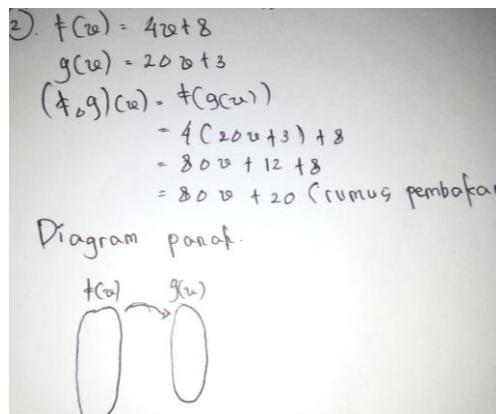 2). f(x) = 4x + 8
g(x) = 20x + 3
(f∘g)(x) = f(g(x))
= 4(20x + 3) + 8
= 80x + 12 + 8
= 80x + 20 (rumus pembakar
Diagram panah.
f(x) g(x)